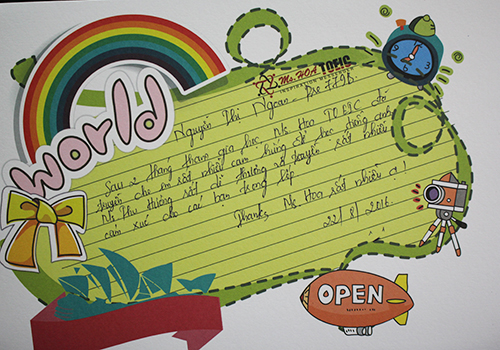 world
Ms. HOA TOEIC
INSPIRATION
Nguyễn Thị Ngoan - Pre 779b
Sau 2 tháng tham gia học Ms Hoa TOEIC đã
truyền cho em rất nhiều cảm hứng để học tiếng anh
Ms Thu Hương rất dễ thương và truyền rất nhiều
cảm xúc cho các bạn trong lớp
Thanks Ms Hoa rất nhiều ạ!
22/8/2016.
OPEN